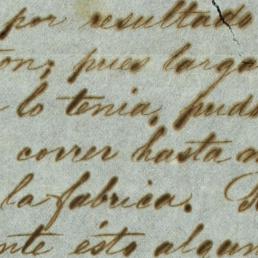 por resultado
ton; pues larga
lo tenia, pud
correr hasta
la fabrica.
nte ésto algun